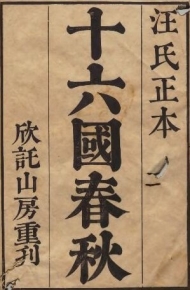 汪氏正本
十六國春秋
欣託山房重刊